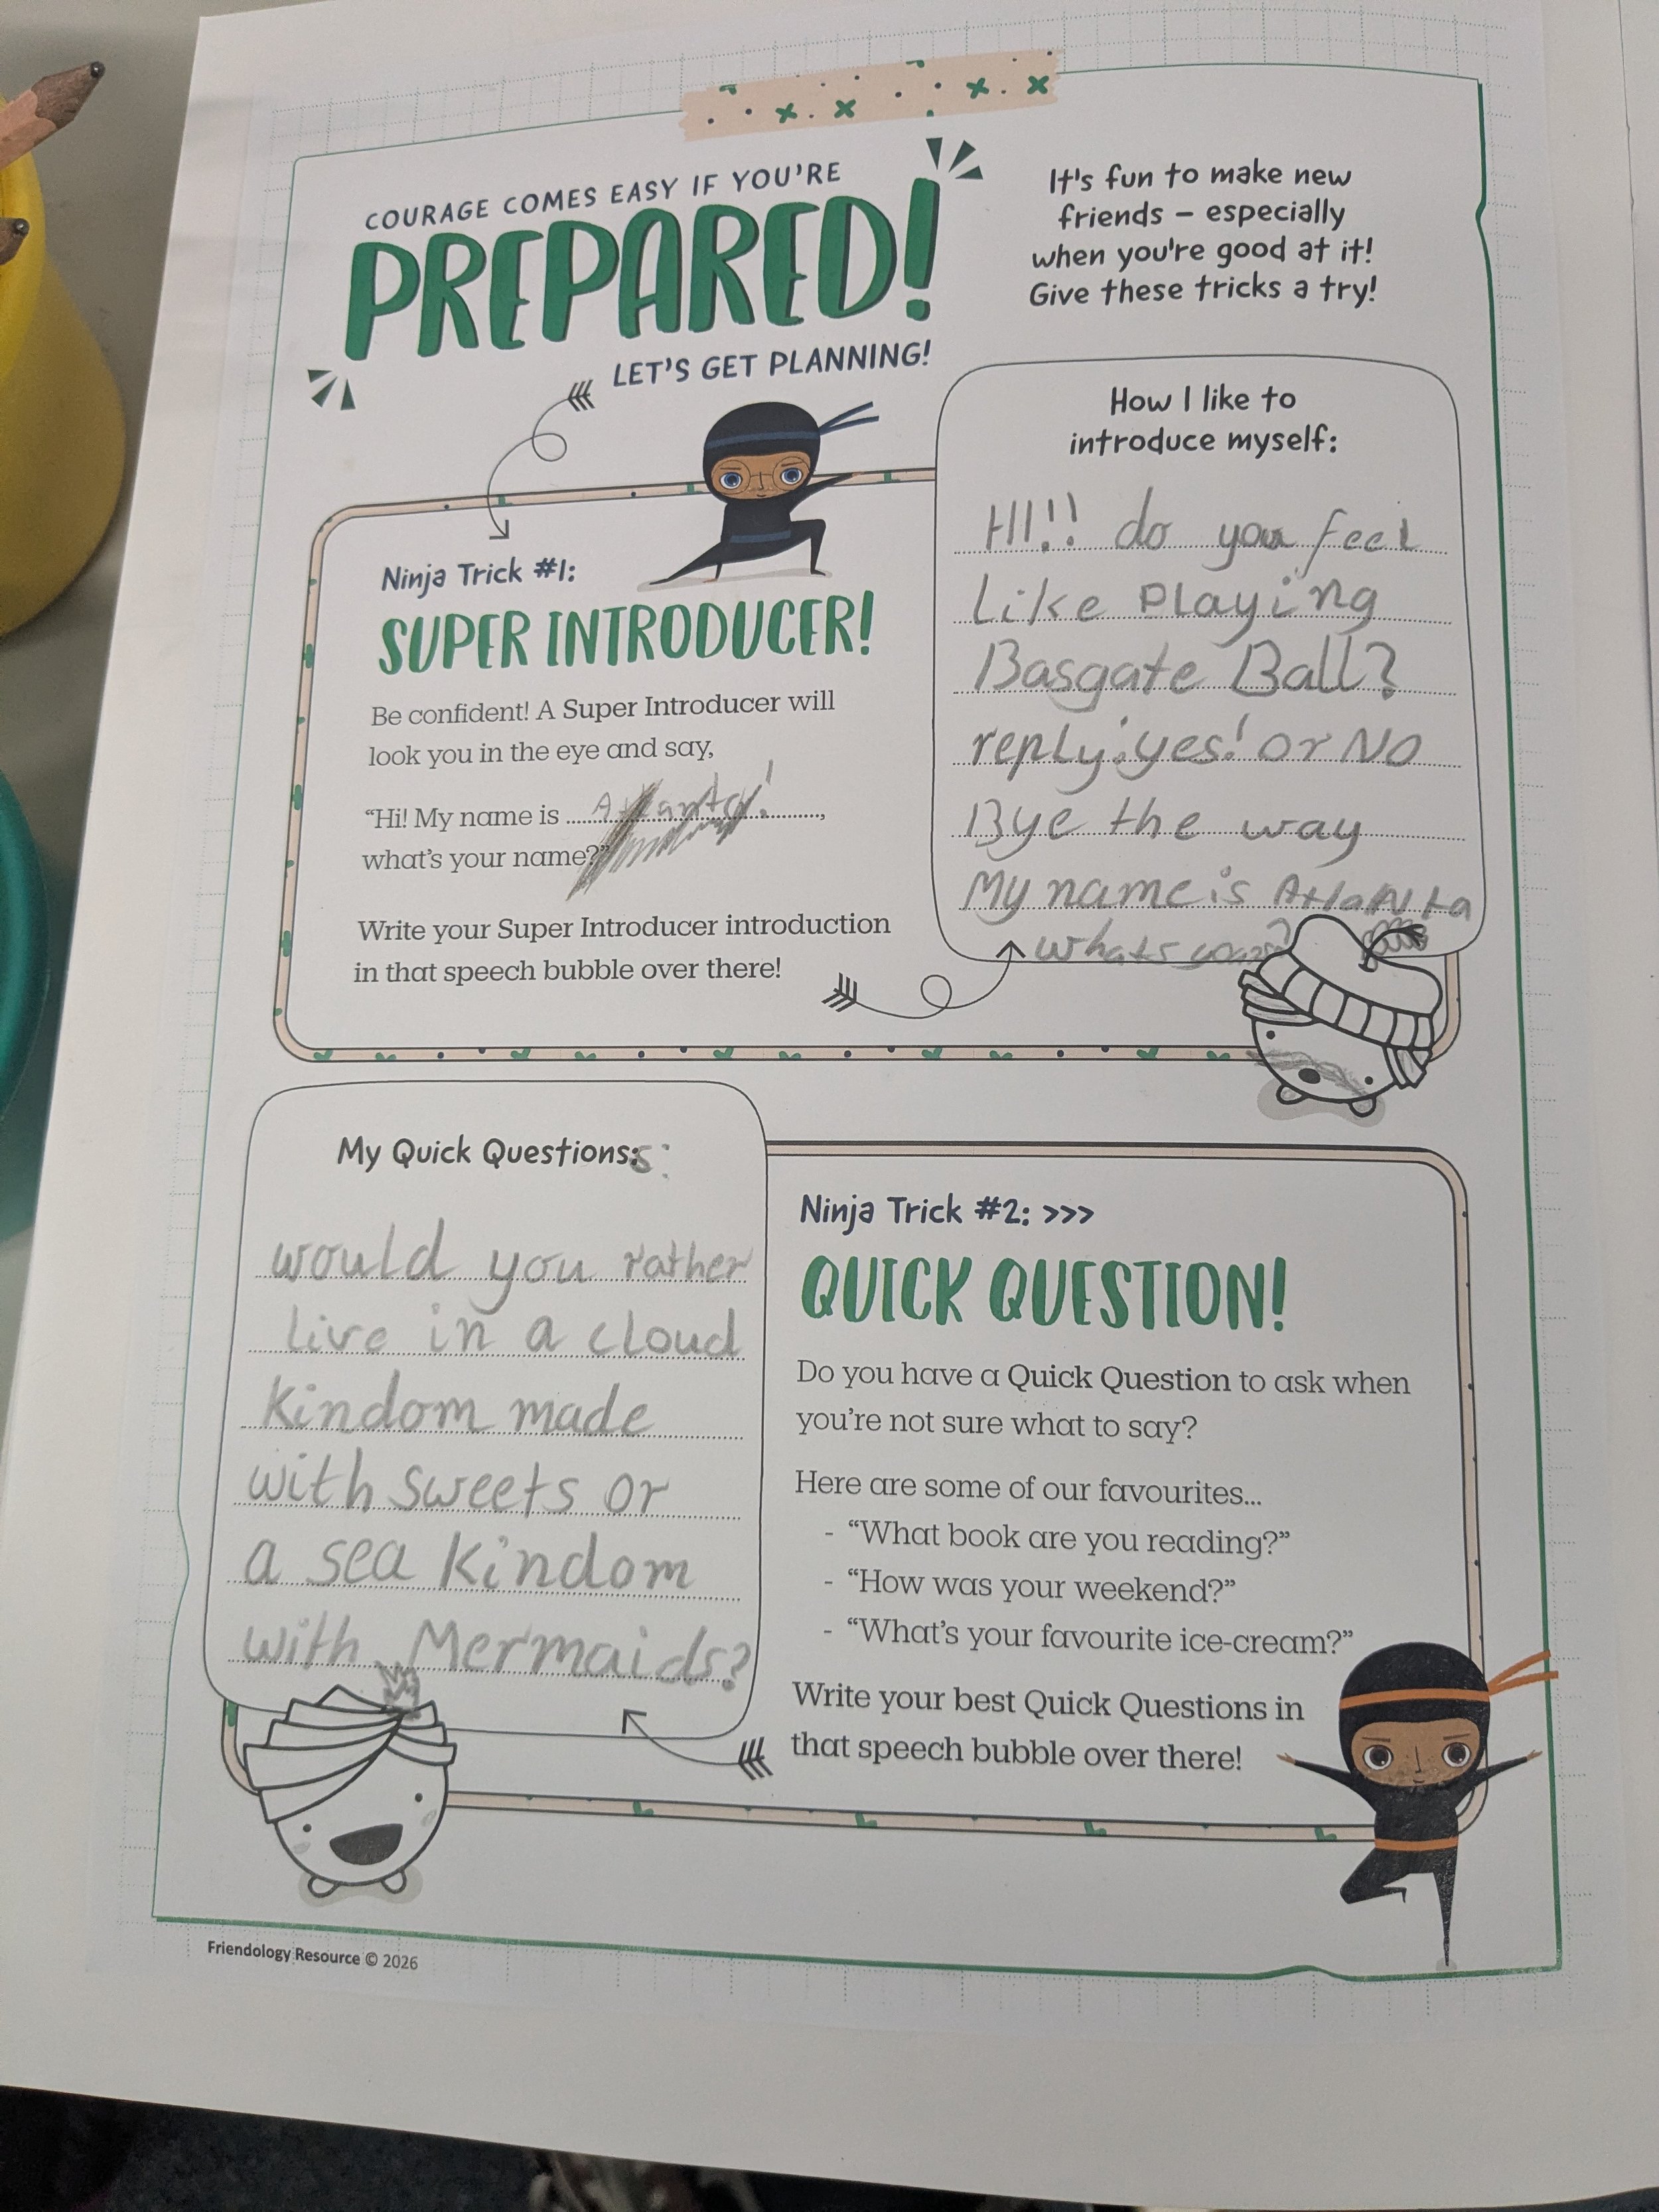 COURAGE COMES EASY IF YOU'RE
PREPARED!
LET'S GET PLANNING!
It's fun to make new
friends – especially
when you're good at it!
Give these tricks a try!
Ninja Trick #1:
SUPER INTRODUCER!
Be confident! A Super Introducer will
look you in the eye and say,
“Hi! My name is Atlanta! ,
what's your name?”
Write your Super Introducer introduction
in that speech bubble over there!
How I like to
introduce myself:
HI!! do you feel
Like Playing
Basgate Ball?
reply:yes! or NO
Bye the way
My name is AtlaNta
whats your?
My Quick Questions:s:
would you rather
live in a cloud
kindom made
with sweets or
a sea kindom
with Mermaids?
Ninja Trick #2: >>>
QUICK QUESTION!
Do you have a Quick Question to ask when
you're not sure what to say?
Here are some of our favourites...
- “What book are you reading?”
- “How was your weekend?”
- “What's your favourite ice-cream?”
Write your best Quick Questions in
that speech bubble over there!
Friendology Resource © 2026